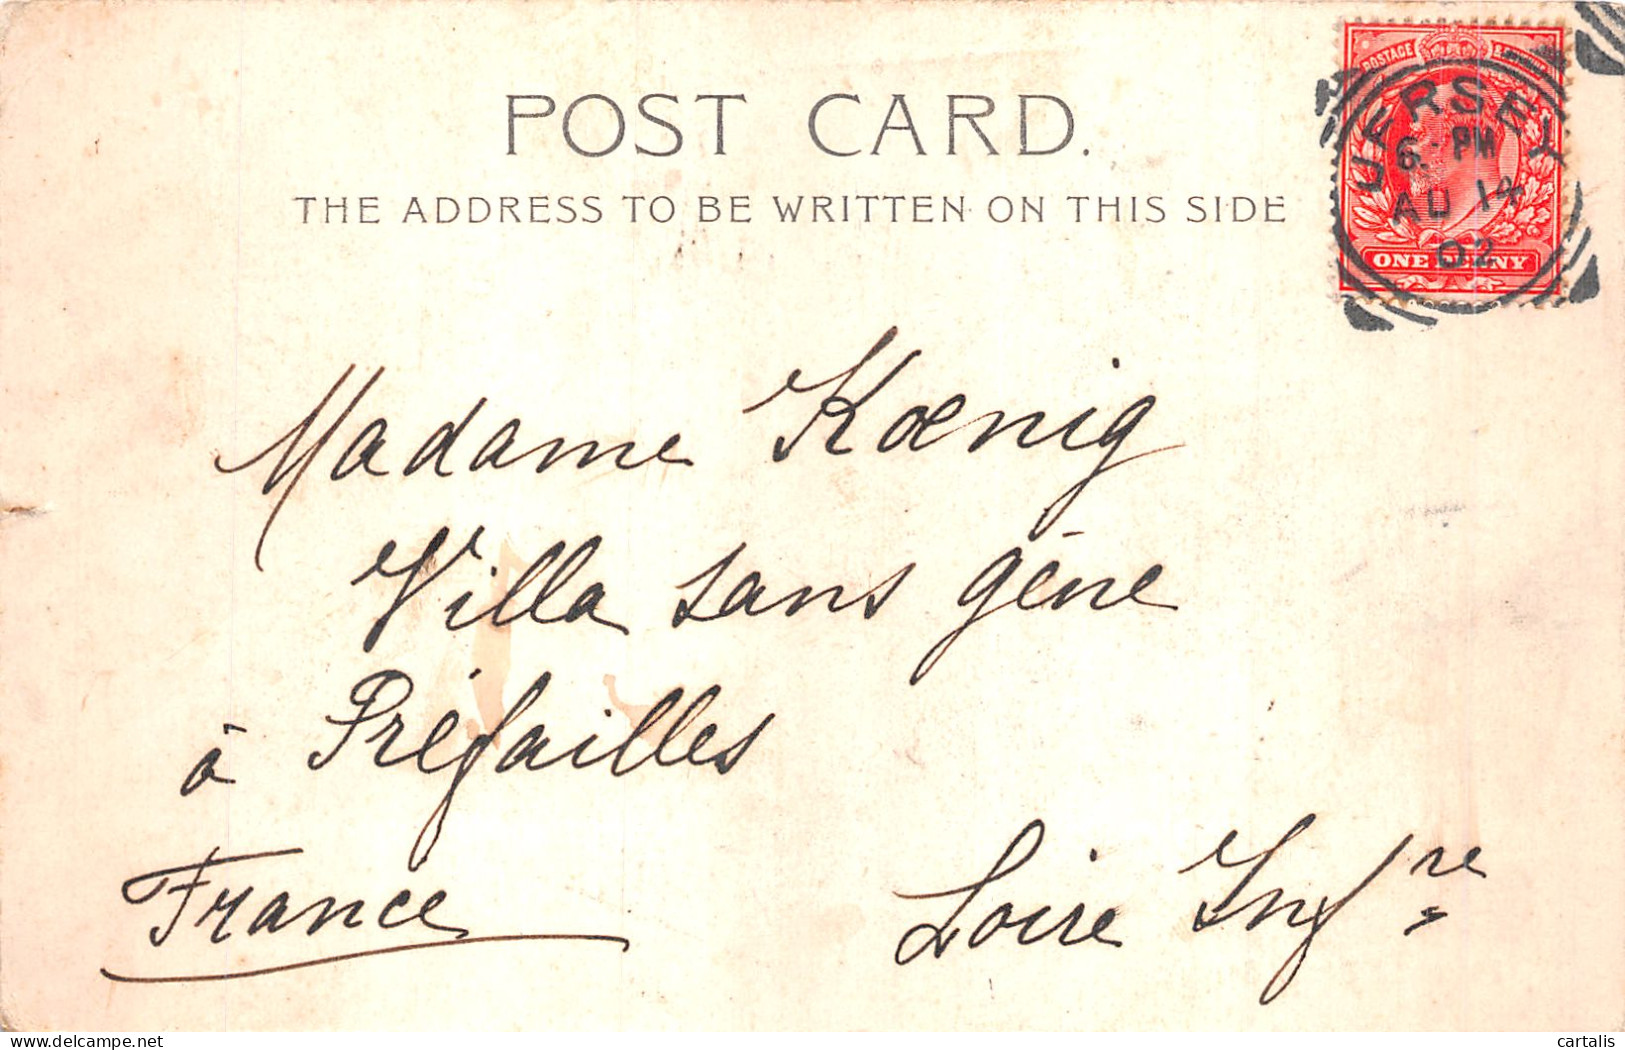 POST CARD.
THE ADDRESS TO BE WRITTEN ON THIS SIDE
POSTAGE
JERSEY
6. PM
AU 14
02
ONE PENNY
Madame Kœnig
Villa sans gêne
à Préfailles
France
Loire Infre
delcampe.net
cartalis